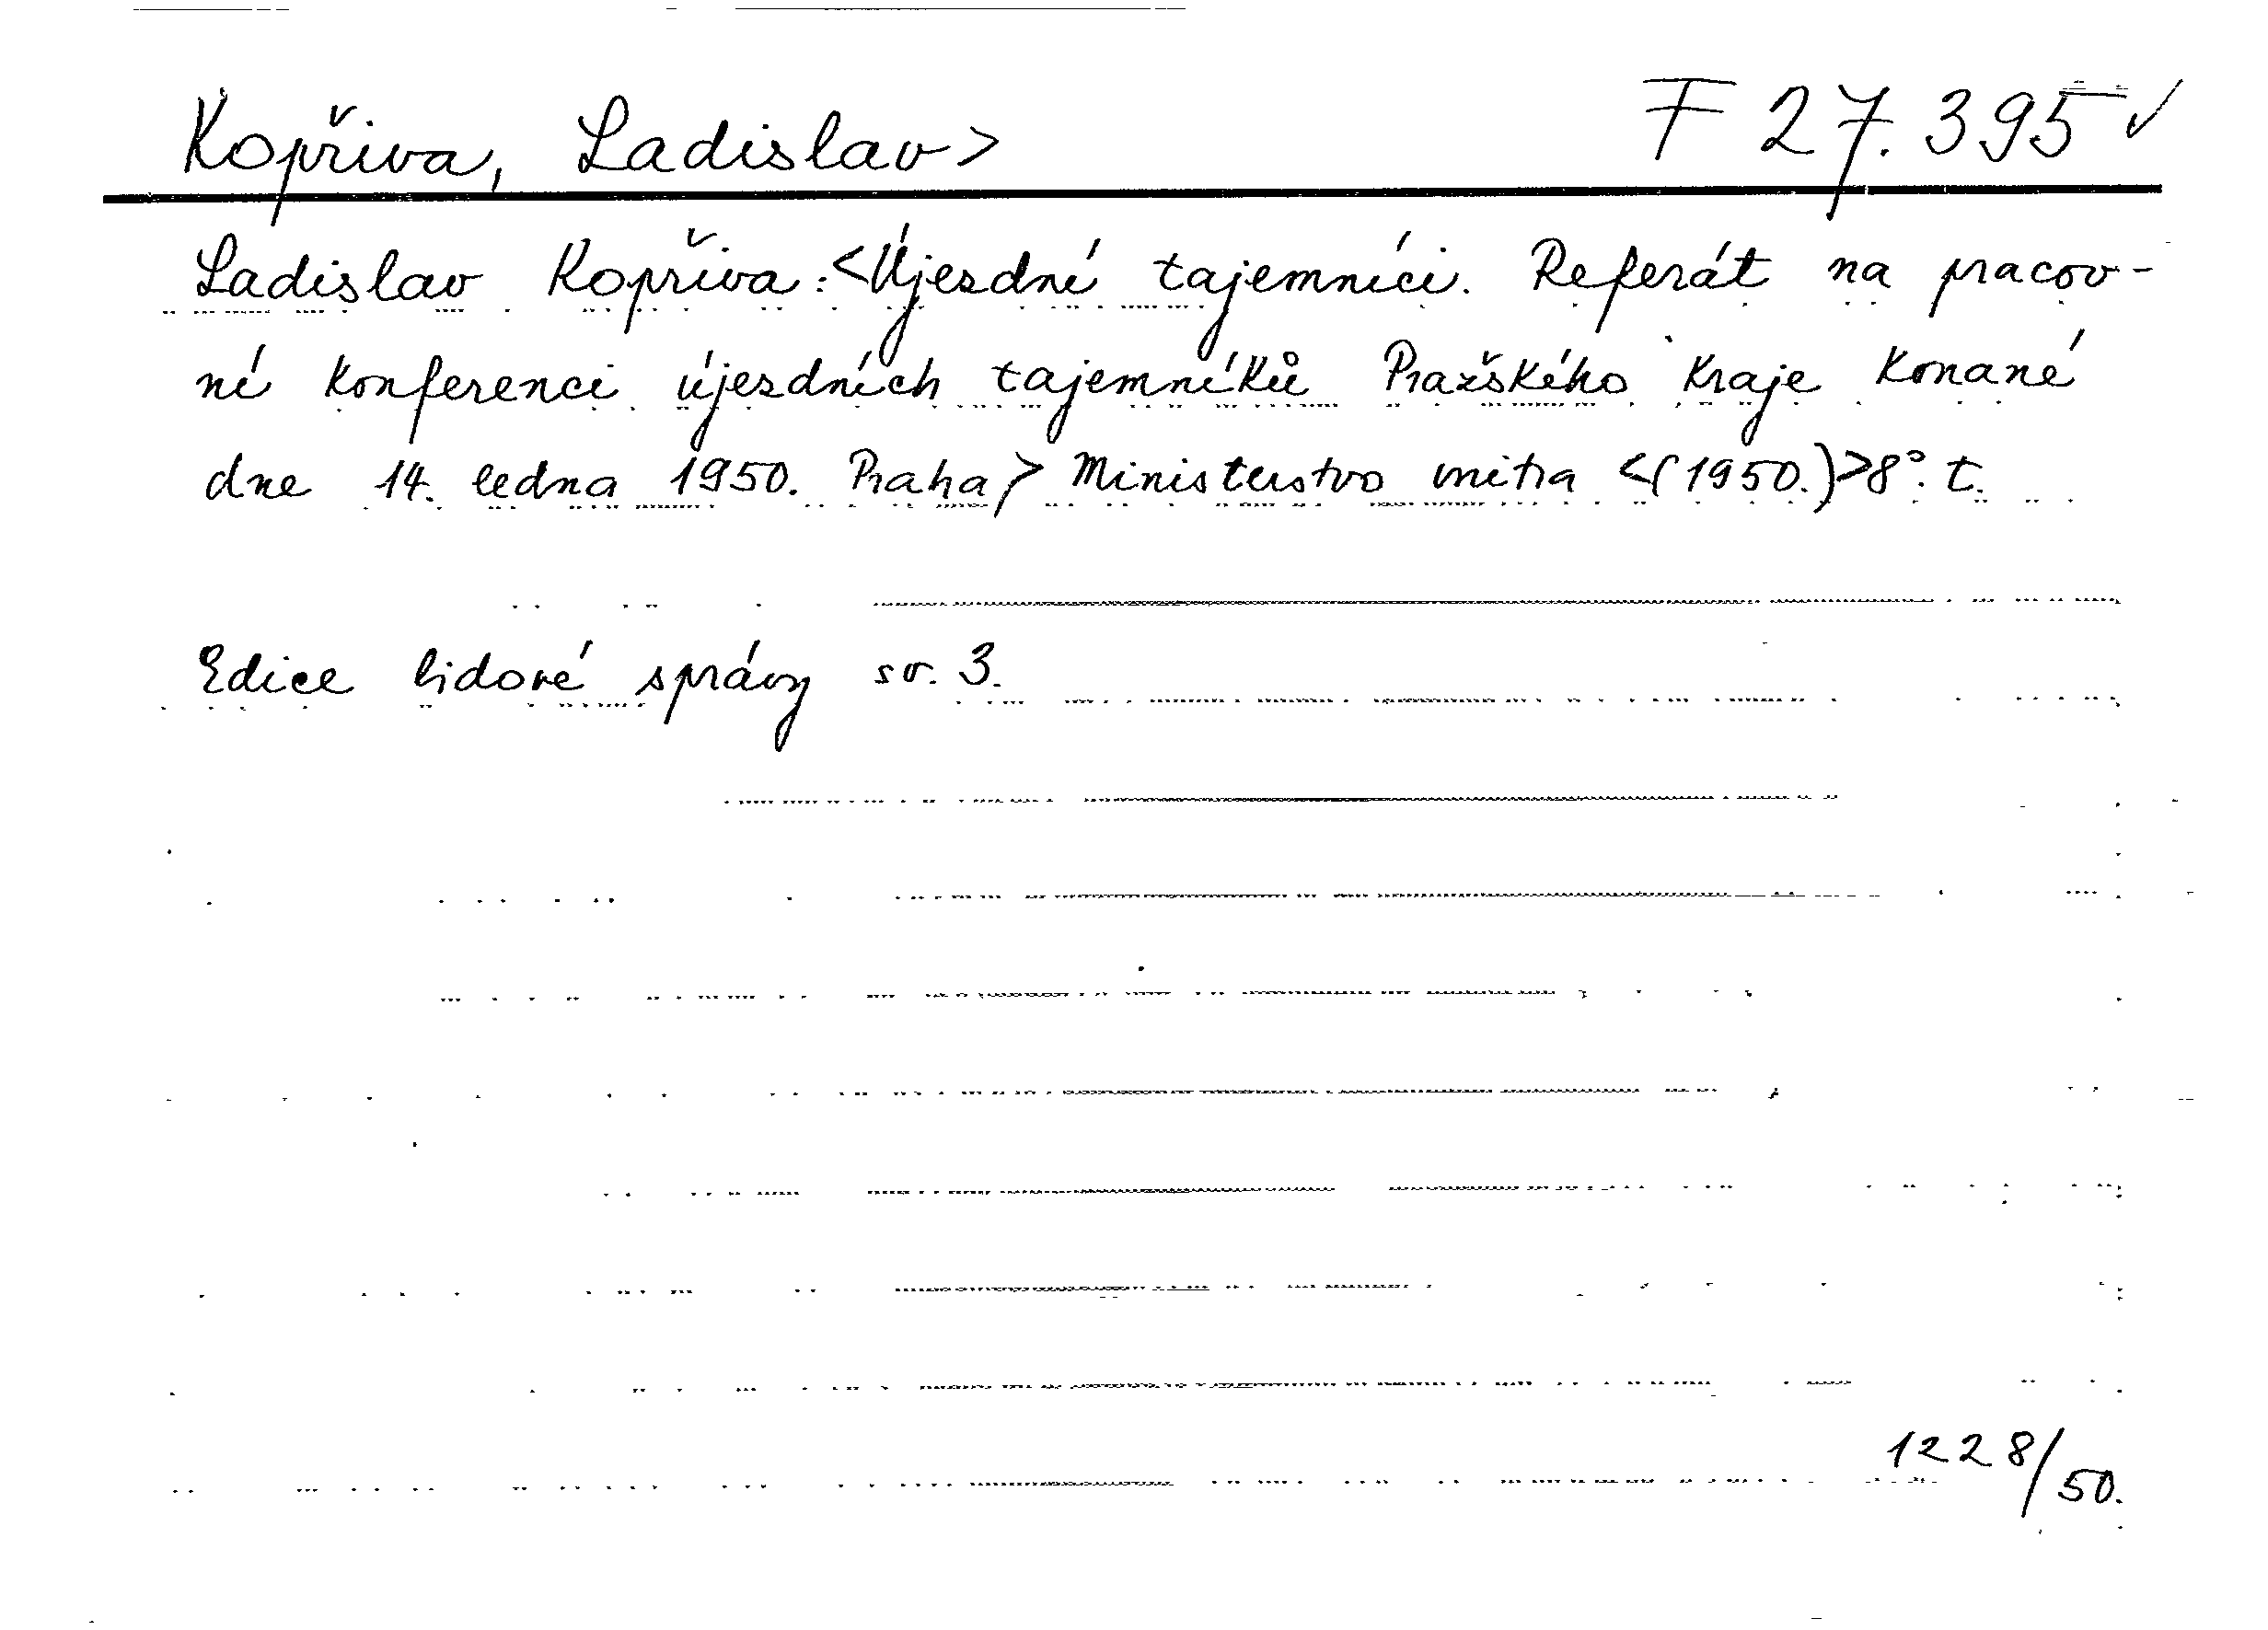 Kopřiva, Ladislav> F 27.395 ✓
Ladislav Kopřiva: <Újezdní tajemníci. Referát na pracov-
ní konferenci újezdních tajemníků Pražského kraje konané
dne 14. ledna 1950. Praha> Ministerstvo vnitra <(1950.)>8°. t.
Edice lidové správy sv. 3.
1228/50.